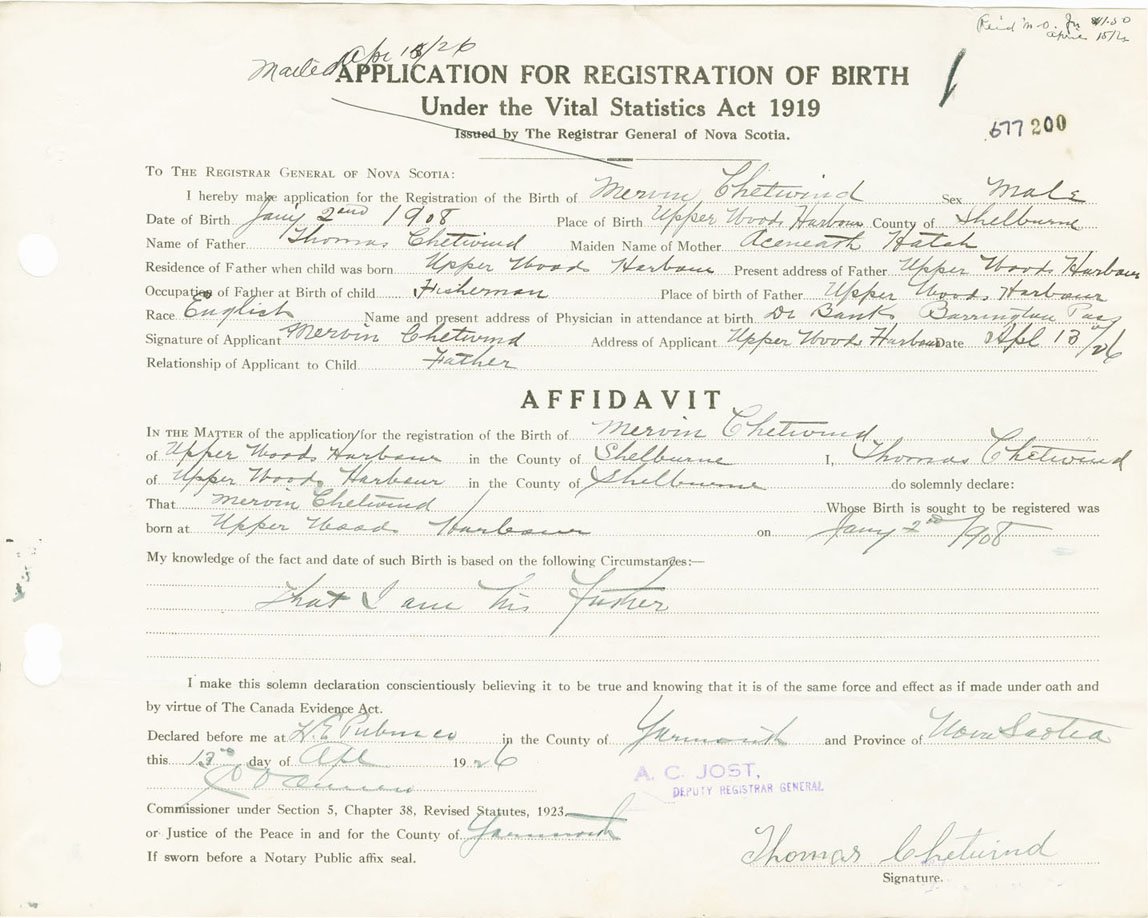 Mailed Apr 13/26
Paid M.O. for $1.50
April 15/26
APPLICATION FOR REGISTRATION OF BIRTH
Under the Vital Statistics Act 1919
Issued by The Registrar General of Nova Scotia.
677200
TO THE REGISTRAR GENERAL OF NOVA SCOTIA:
I hereby make application for the Registration of the Birth of Mervin Chetwind Sex Male
Date of Birth Jany 2nd 1908 Place of Birth Upper Woods Harbour County of Shelburne
Name of Father Thomas Chetwind Maiden Name of Mother Aceneath Hatch
Residence of Father when child was born Upper Woods Harbour Present address of Father Upper Woods Harbour
Occupation of Father at Birth of child Fisherman Place of birth of Father Upper Woods Harbour
Race English Name and present address of Physician in attendance at birth Dr Banks Barrington Pas
Signature of Applicant Mervin Chetwind Address of Applicant Upper Woods Harbour Date Apl 13/26
Relationship of Applicant to Child Father
AFFIDAVIT
IN THE MATTER of the application for the registration of the Birth of Mervin Chetwind
of Upper Woods Harbour in the County of Shelburne I, Thomas Chetwind
of Upper Woods Harbour in the County of Shelburne do solemnly declare:
That Mervin Chetwind Whose Birth is sought to be registered was
born at Upper Woods Harbour on Jany 2nd/1908
My knowledge of the fact and date of such Birth is based on the following Circumstances:—
That I am his Father
I make this solemn declaration conscientiously believing it to be true and knowing that it is of the same force and effect as if made under oath and
by virtue of The Canada Evidence Act.
Declared before me at in the County of Yarmouth and Province of Nova Scotia
this 13th day of Apl 1926
A. C. JOST,
DEPUTY REGISTRAR GENERAL
Commissioner under Section 5, Chapter 38, Revised Statutes, 1923
or Justice of the Peace in and for the County of Yarmouth
If sworn before a Notary Public affix seal.
Thomas Chetwind
Signature.